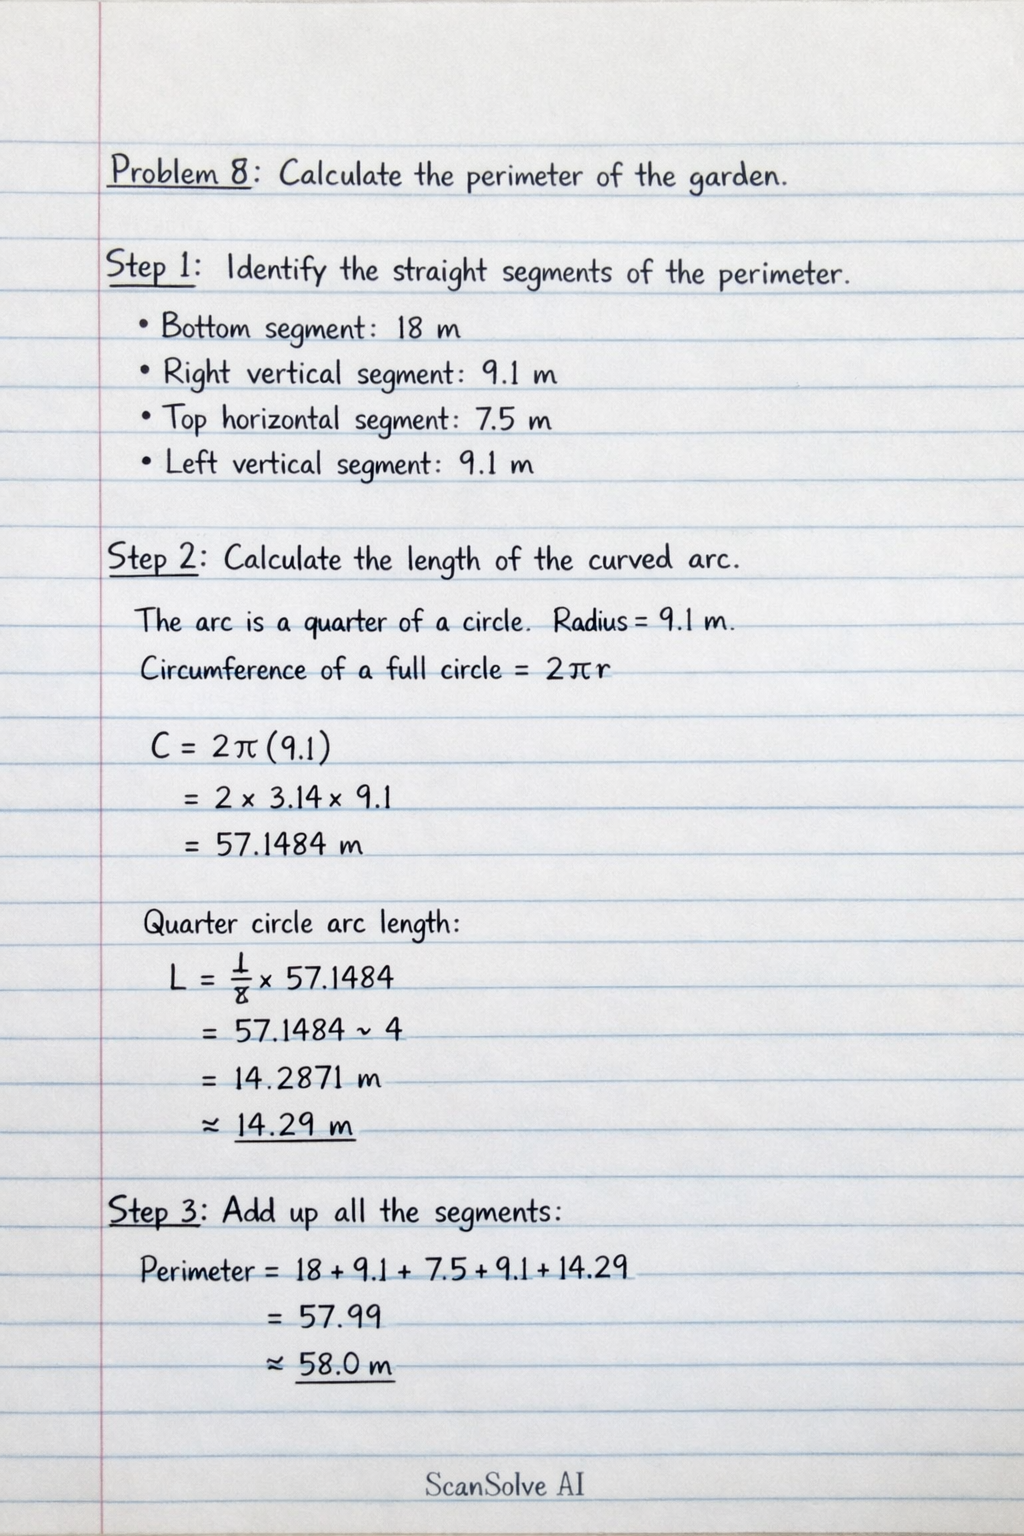 Problem 8: Calculate the perimeter of the garden.
Step 1: Identify the straight segments of the perimeter.
• Bottom segment: 18 m
• Right vertical segment: 9.1 m
• Top horizontal segment: 7.5 m
• Left vertical segment: 9.1 m
Step 2: Calculate the length of the curved arc.
The arc is a quarter of a circle. Radius = 9.1 m.
Circumference of a full circle = 2πr
C = 2π(9.1)
= 2 × 3.14 × 9.1
= 57.1484 m
Quarter circle arc length:
L = 1/8 × 57.1484
= 57.1484 ~ 4
= 14.2871 m
≈ 14.29 m
Step 3: Add up all the segments:
Perimeter = 18 + 9.1 + 7.5 + 9.1 + 14.29
= 57.99
≈ 58.0 m
ScanSolve AI